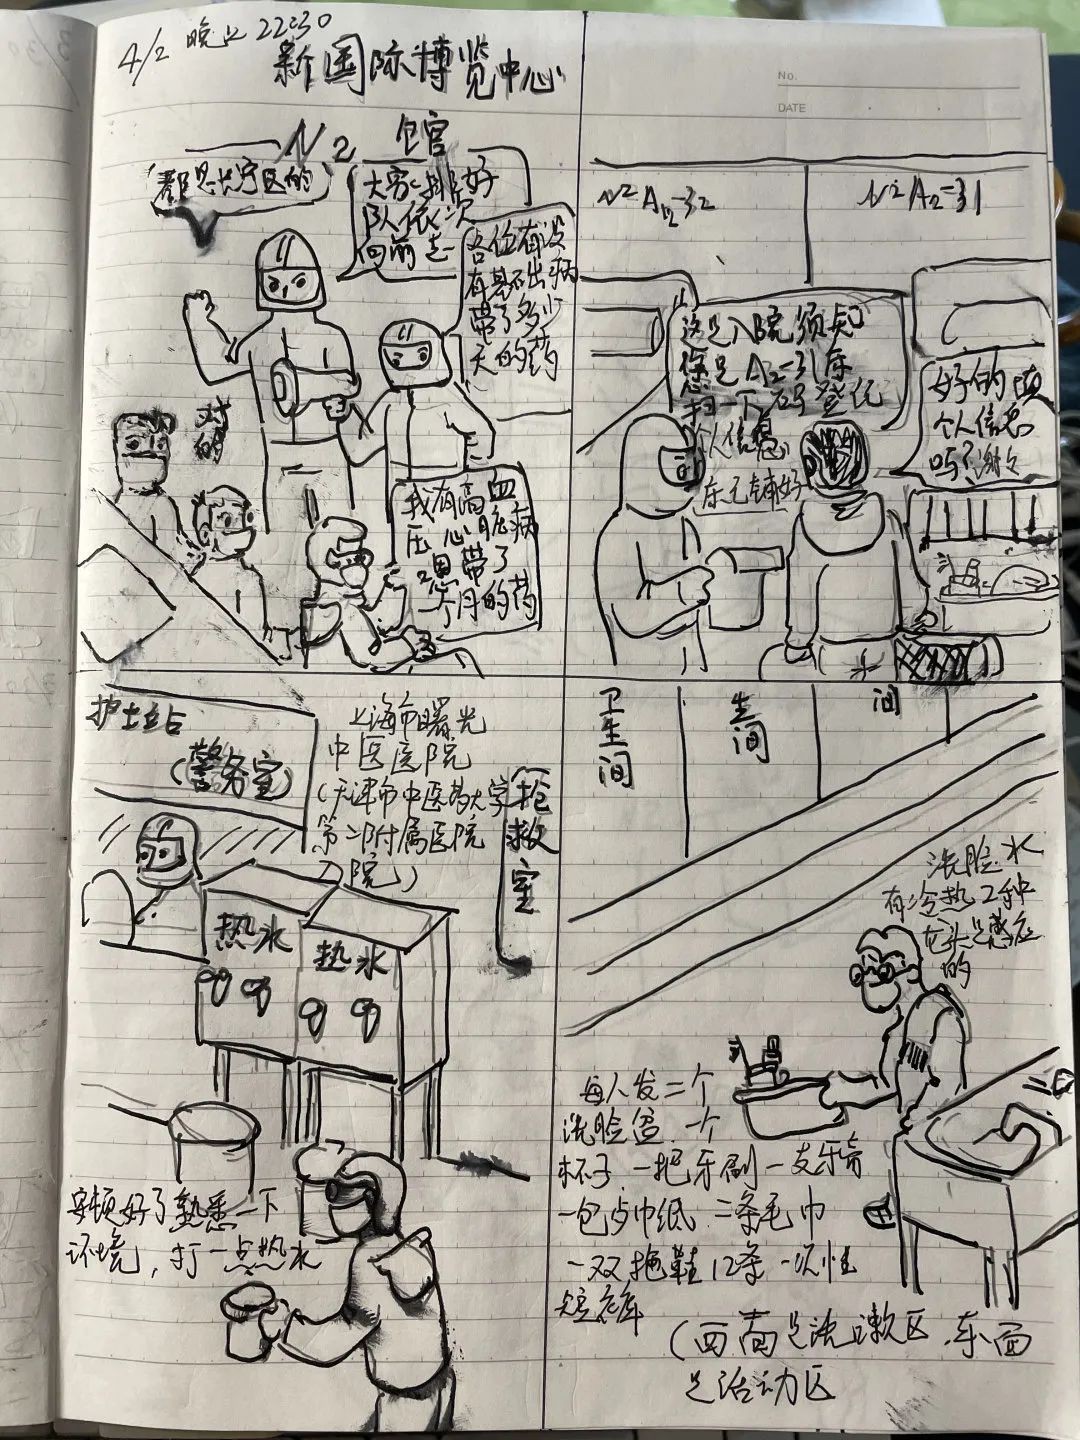 4/2 晚上 22:30
新国际博览中心
N2
都是长宁区的
大家排好
队依次
向前走
各位有没
有基础病
带了多少
天的药
对
的
我有高血
压心脏病
带了
个月的药
No.
DATE
N2 A2-32
N2 A2-31
这是入院须知
您是A2-31床
扫一下码登记
个人信息
床已铺好
好的填
个人信息
吗?谢谢
护士站
(警务室)
上海市曙光
中医医院
(天津市中医药大学
第二附属医院
入院)
抢
救
室
热水
热水
安顿好了熟悉一下
环境,打一点热水
卫
生
间
生
间
间
洗脸水
有冷热2种
龙头是感应
的
每人发二个
洗脸盆一个
杯子一把牙刷一支牙膏
一包卢巾纸 三条毛巾
一双拖鞋12条一次性
短裤
(西面是洗漱区 东面
是活动区